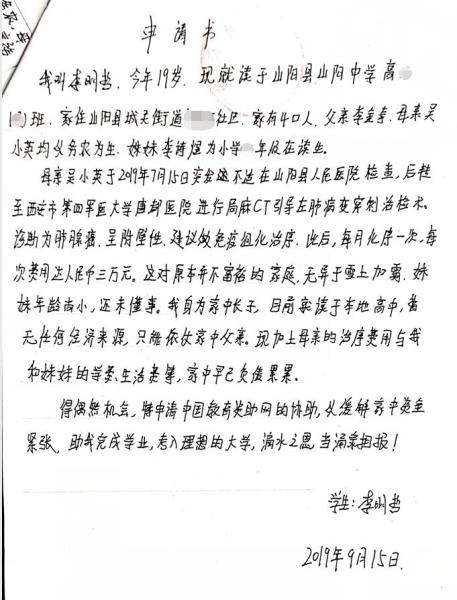 申请书
我叫李明哲，今年19岁，现就读于山阳县山阳中学高
班，家住山阳县城关街道 社区，家有4口人，父亲李金奇，母亲吴
小英均以务农为生，妹妹李 煜为小学 年级在读生。
母亲吴小英于2019年7月15日突发 不适在山阳县人民医院检查，后转
至西安市第四军医大学唐都医院进行局麻CT引导左肺病变穿刺活检术。
诊断为肺腺癌，呈阴 性，建议做免疫组化治疗，此后，每月化疗一次，每
次费用达人民币三万元。这对原本并不富裕的家庭，无异于雪上加霜，妹
妹年龄尚小，还未懂事。我身为家中长子，目前求读于本地高中，暂
无任何经济来源，只能依仗家中父亲。现加上母亲的治疗费用与我
和妹妹的学费、生活费等，家中早已负债累累。
得偶然机会，特申请中国教育奖助网的协助，以缓解家中资金
紧张，助我完成学业，走入理想的大学，滴水之恩，当涌泉相报！
学生：李明哲
2019年9月15日.